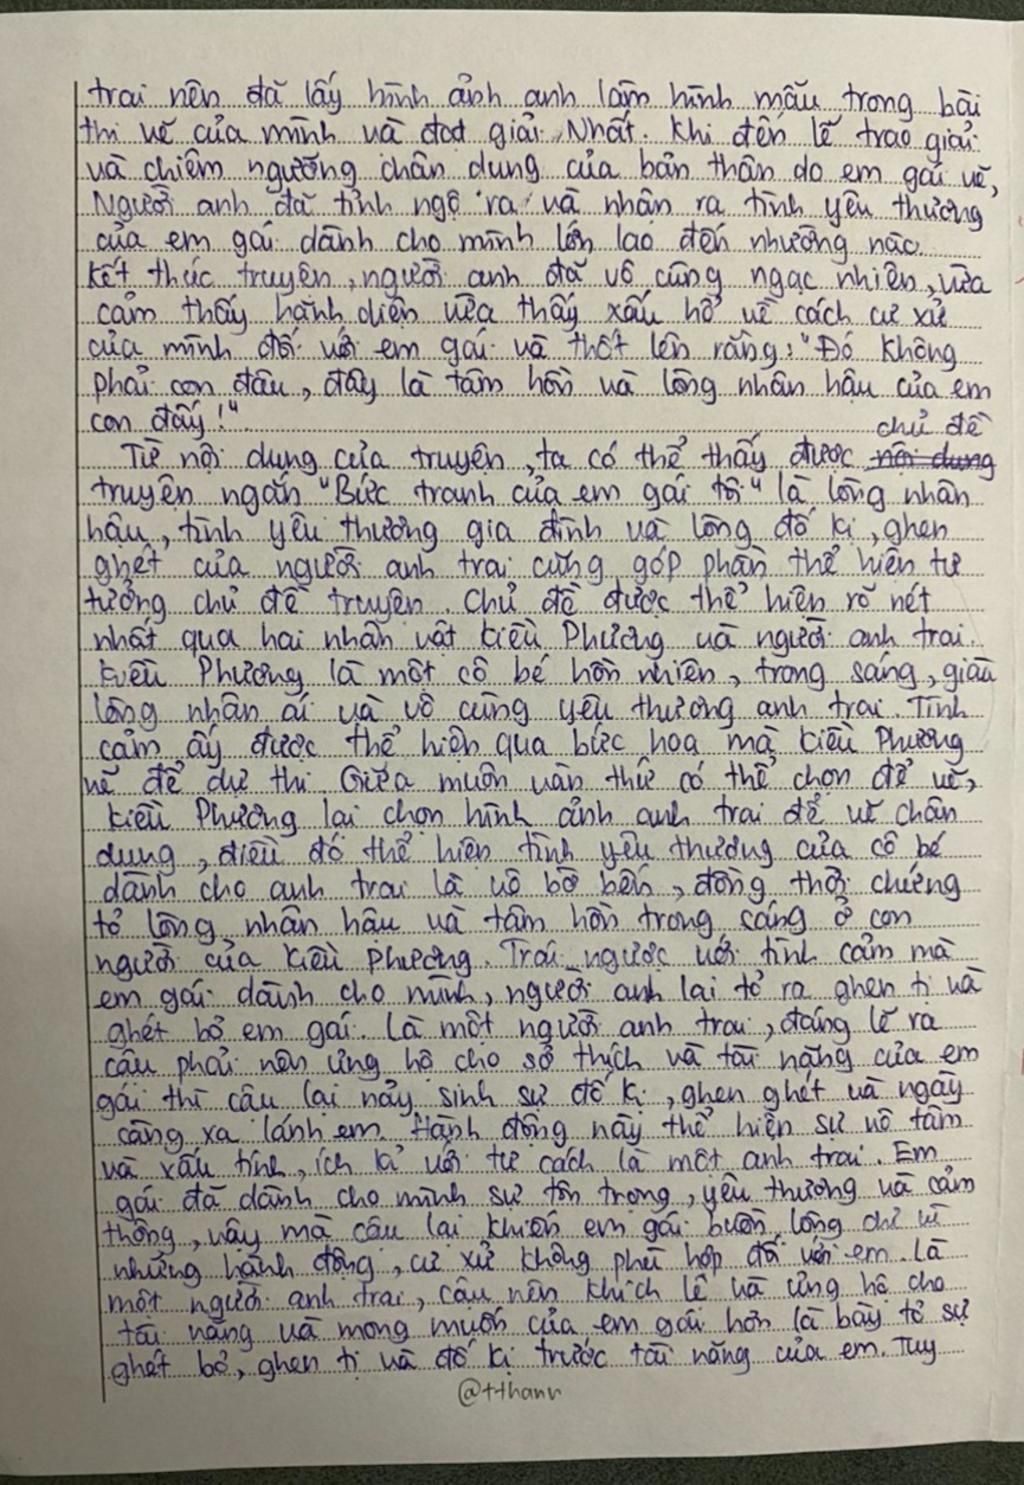 trai nên đã lấy hình ảnh anh làm hình mẫu trong bài
thi vẽ của mình và đạt giải Nhất. Khi đến lễ trao giải
và chiêm ngưỡng chân dung của bản thân do em gái vẽ,
Người anh đã tỉnh ngộ ra và nhận ra tình yêu thương
của em gái dành cho mình lớn lao đến nhường nào.
Kết thúc truyện, người anh đã vô cùng ngạc nhiên, vừa
cảm thấy hãnh diện vừa thấy xấu hổ về cách cư xử
của mình đối với em gái và thốt lên rằng: "Đó không
phải con đâu, đây là tâm hồn và lòng nhân hậu của em
con đấy!"
chủ đề
Từ nội dung của truyện, ta có thể thấy được nội dung
truyện ngắn "Bức tranh của em gái tôi" là lòng nhân
hậu, tình yêu thương gia đình và lòng đố kị, ghen
ghét của người anh trai cũng góp phần thể hiện tư
tưởng chủ đề truyện. Chủ đề được thể hiện rõ nét
nhất qua hai nhân vật Kiều Phương và người anh trai.
Kiều Phương là một cô bé hồn nhiên, trong sáng, giàu
lòng nhân ái và vô cùng yêu thương anh trai. Tình
cảm ấy được thể hiện qua bức họa mà Kiều Phương
vẽ để dự thi. Giữa muôn vàn thứ có thể chọn để vẽ,
Kiều Phương lại chọn hình ảnh anh trai để vẽ chân
dung, điều đó thể hiện tình yêu thương của cô bé
dành cho anh trai là vô bờ bến, đồng thời chứng
tỏ lòng nhân hậu và tâm hồn trong sáng ở con
người của Kiều Phương. Trái ngược với tình cảm mà
em gái dành cho mình, người anh lại tỏ ra ghen tị và
ghét bỏ em gái. Là một người anh trai, đáng lẽ ra
cậu phải nên ủng hộ cho sở thích và tài năng của em
gái thì cậu lại nảy sinh sự đố kị, ghen ghét và ngày
càng xa lánh em. Hành động này thể hiện sự vô tâm
và xấu tính, ích kỉ với tư cách là một anh trai. Em
gái đã dành cho mình sự tôn trọng, yêu thương và cảm
thông, vậy mà cậu lại khiến em gái buồn lòng chỉ vì
những hành động, cư xử không phù hợp đối với em. Là
một người anh trai, cậu nên khích lệ và ủng hộ cho
tài năng và mong muốn của em gái hơn là bày tỏ sự
ghét bỏ, ghen tị và đố kị trước tài năng của em. Tuy
@tthanr